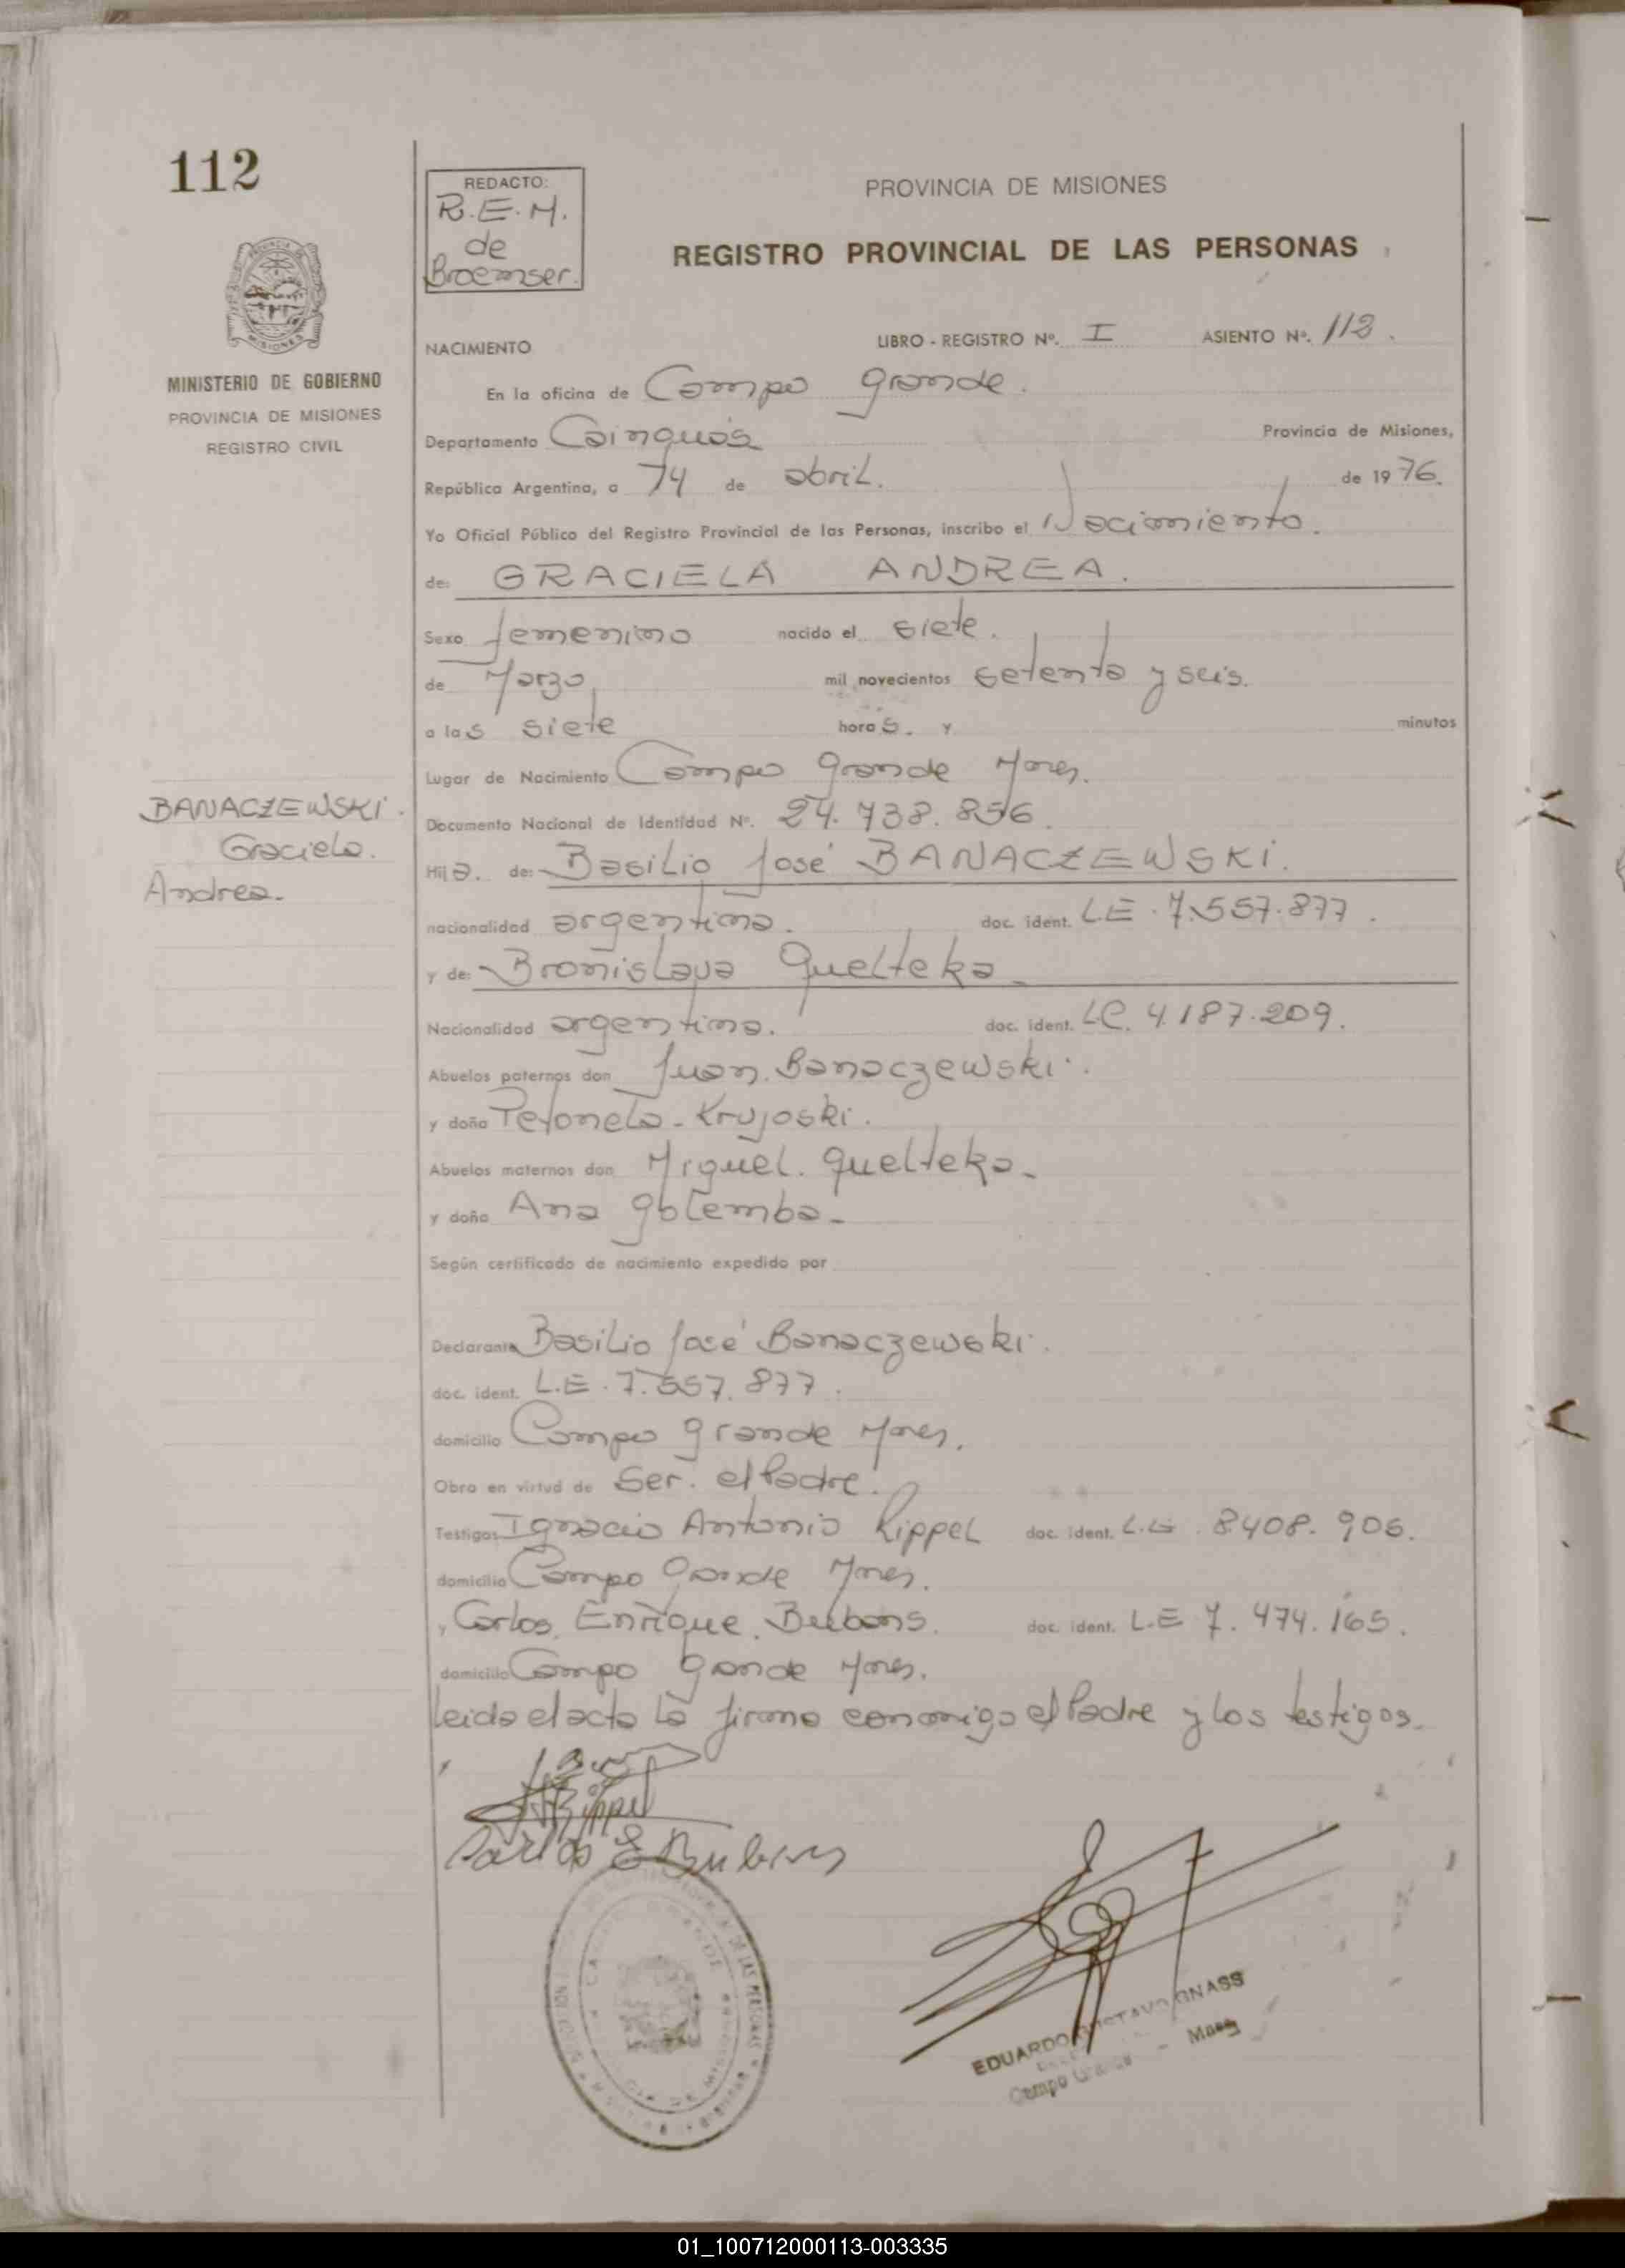 112
REDACTO:
R.E.M.
de
Broemser.
PROVINCIA DE MISIONES
REGISTRO PROVINCIAL DE LAS PERSONAS
MINISTERIO DE GOBIERNO
PROVINCIA DE MISIONES
REGISTRO CIVIL
NACIMIENTO
LIBRO - REGISTRO Nº. I ASIENTO Nº. 112.
En la oficina de Campo Grande.
Departamento Cainguás Provincia de Misiones,
República Argentina, a 14 de abril. de 1976.
Yo Oficial Público del Registro Provincial de las Personas, inscribo el Nacimiento.
de: GRACIELA ANDREA.
Sexo femenino nacido el siete.
de Marzo mil novecientos setenta y seis.
a las siete horas. y minutos
Lugar de Nacimiento Campo Grande Mnes.
Documento Nacional de Identidad Nº. 24.738.856.
BANACZEWSKI.
Graciela.
Andrea.
Hija. de: Basilio José BANACZEWSKI.
nacionalidad argentina. doc. ident. L.E. 7.557.877.
y de: Bronislava Quelteka
Nacionalidad argentina. doc. ident. L.C. 4.187.209.
Abuelos paternos don Juan. Banaczewski.
y doña Petonela - Krujoski.
Abuelos maternos don Miguel. Quelteka -
y doña Ana Golemba -
Según certificado de nacimiento expedido por
Declarante Basilio José Banaczewski.
doc. ident. L.E. 7.557.877.
domicilio Campo Grande Mnes.
Obra en virtud de Ser. el Padre.
Testigos Ignacio Antonio Rippel doc. ident. L.E. 8408.906.
domicilio Campo Grande Mnes.
y Carlos Enrique. Bubans. doc. ident. L.E 7.474.165.
domicilio Campo Grande Mnes.
leida el acta la firma conmigo el Padre y los testigos.
Carlos E Bubans
EDUARDO GUSTAVO GNASS
Campo Grande - Mnes
DE LAS PERSONAS
01_100712000113-003335